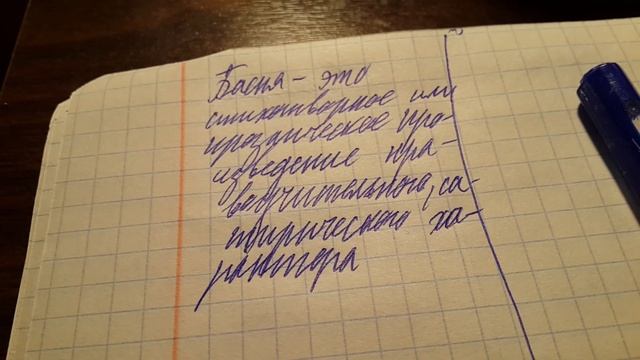 Басня – это
стихотворное или
прозаическое про-
изведение нра-
воучительного, са-
тирического ха-
рактера